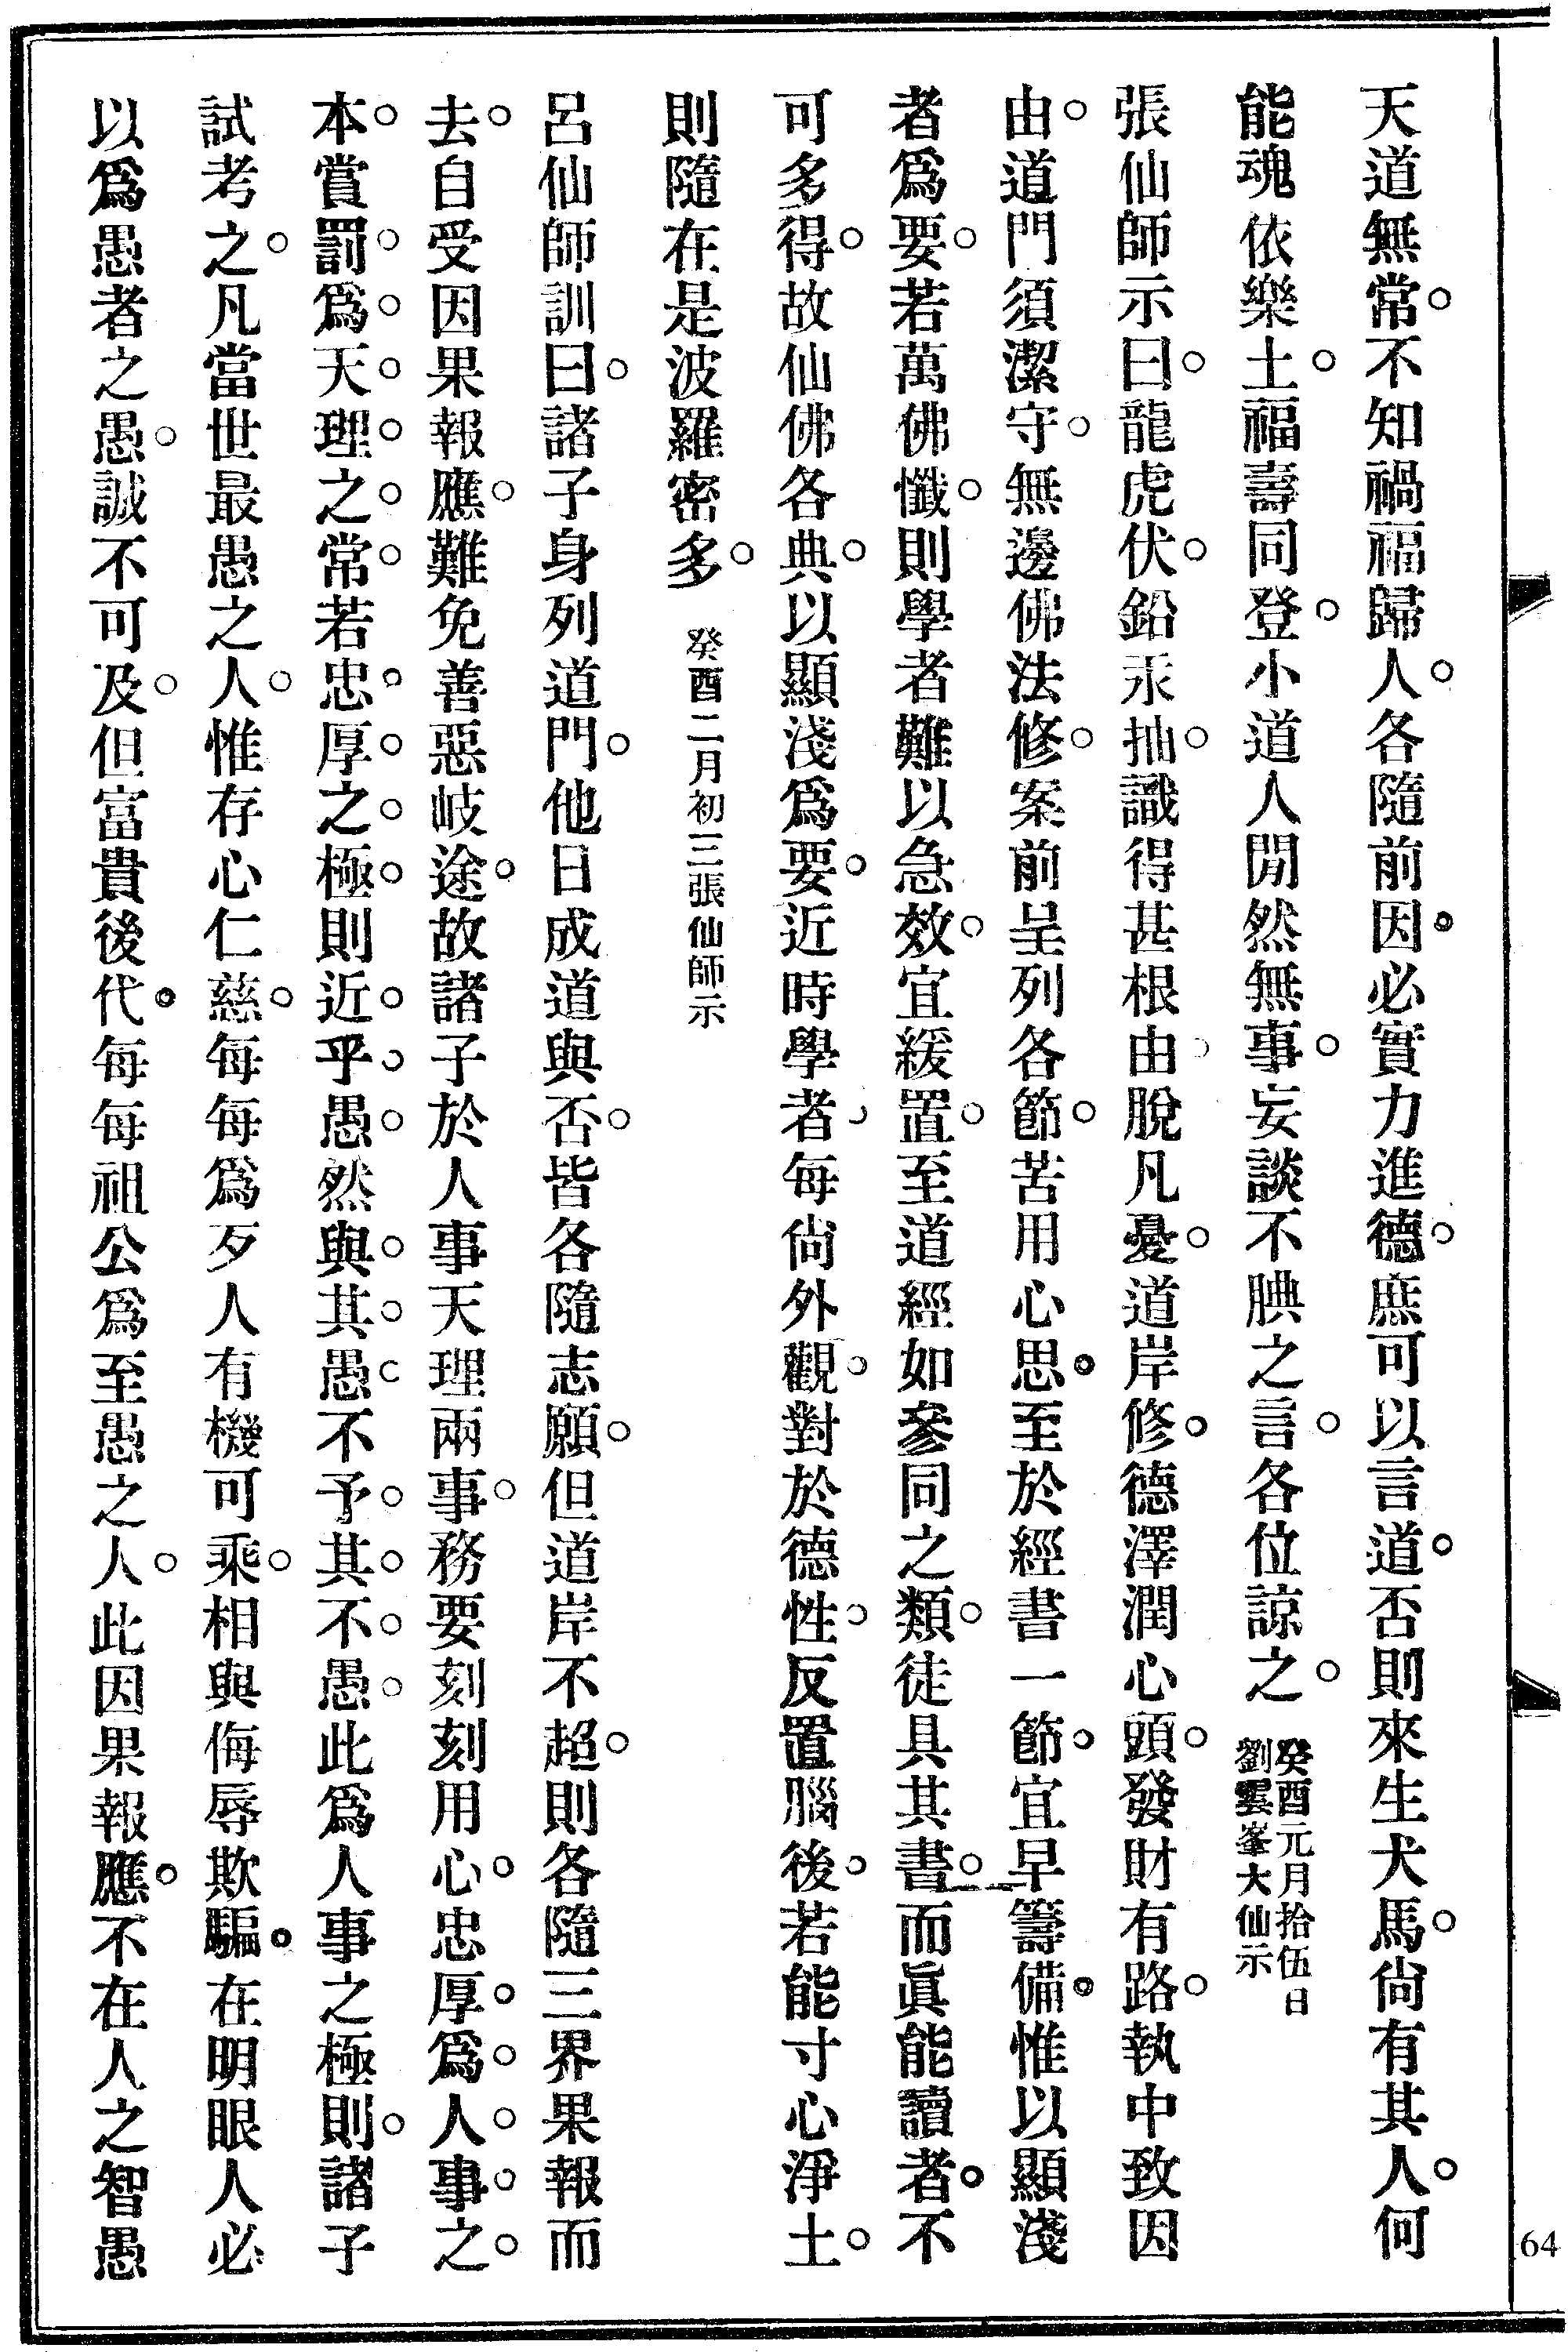 天道無常。不知禍福歸人。各隨前因。必實力進德。庶可以言道。否則來生犬馬。尙有其人。何
能魂依樂土。福壽同登。小道人閒然無事。妄談不腆之言。各位諒之。癸酉元月拾伍日劉雲峯大仙示
張仙師示曰。龍虎伏。鉛汞拙。識得甚根由。脫凡憂。道岸修。德澤潤心頭。發財有路。執中致因
由。道門須潔守。無邊佛法修。案前呈列各節。苦用心思。至於經書一節。宜早籌備。惟以顯淺
者爲要。若萬佛懺。則學者難以急效。宜緩置。至道經如參同之類。徒具其書。而眞能讀者。不
可多得。故仙佛各典。以顯淺爲要。近時學者。每尙外觀。對於德性。反置腦後。若能寸心淨土。
則隨在是波羅密多。癸酉二月初三張仙師示
呂仙師訓曰。諸子身列道門。他日成道與否。皆各隨志願。但道岸不超。則各隨三界果報而
去。自受因果報應。難免善惡岐途。故諸子於人事天理兩事。務要刻刻用心。忠厚。爲。人。事。之。
本。賞罰。爲。天。理。之。常。若忠。厚。之。極。則近。乎。愚。然與。其。愚。不予。其。不。愚。此爲人事之極則。諸子
試考之。凡當世最愚之人。惟存心仁慈。每每爲歹人有機可乘。相與侮辱欺騙。在明眼人必
以爲愚者之愚。誠不可及。但富貴後代。每每祖公爲至愚之人。此因果報應。不在人之智愚
64